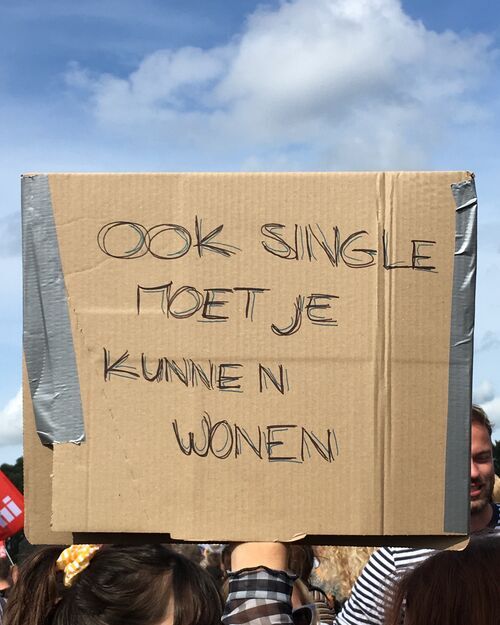 OOK SINGLE
MOET JE
KUNNEN
WONEN